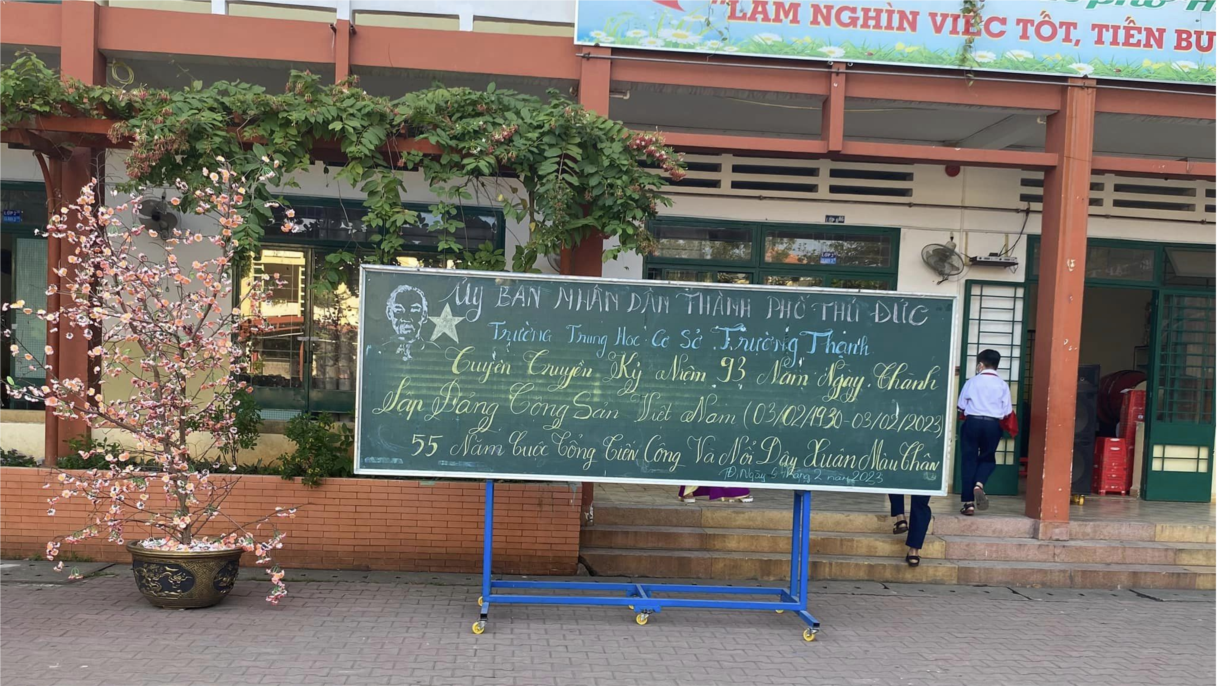 "LÀM NGHÌN VIỆC TỐT, TIẾN BƯ
Ủy BAN NHÂN DÂN THÀNH PHỐ THỦ ĐỨC
Trường Trung Học Cơ Sở Trường Thạnh
Tuyên Truyền Kỷ Niệm 93 Năm Ngày Thành
Lập Đảng Cộng Sản Việt Nam (03/02/1930-03/02/2023)
55 Năm Cuộc Tổng Tiến Công Và Nổi Dậy Xuân Mậu Thân
TĐ, Ngày 5 tháng 2 năm 2023